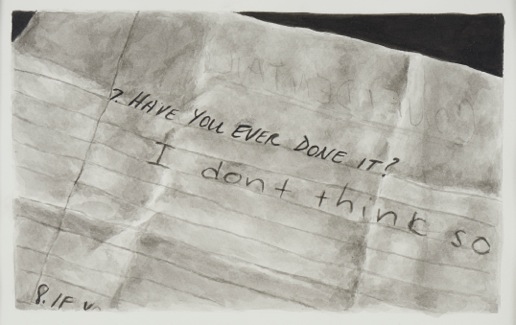 7. HAVE YOU EVER DONE IT?
I dont think so
8. IF